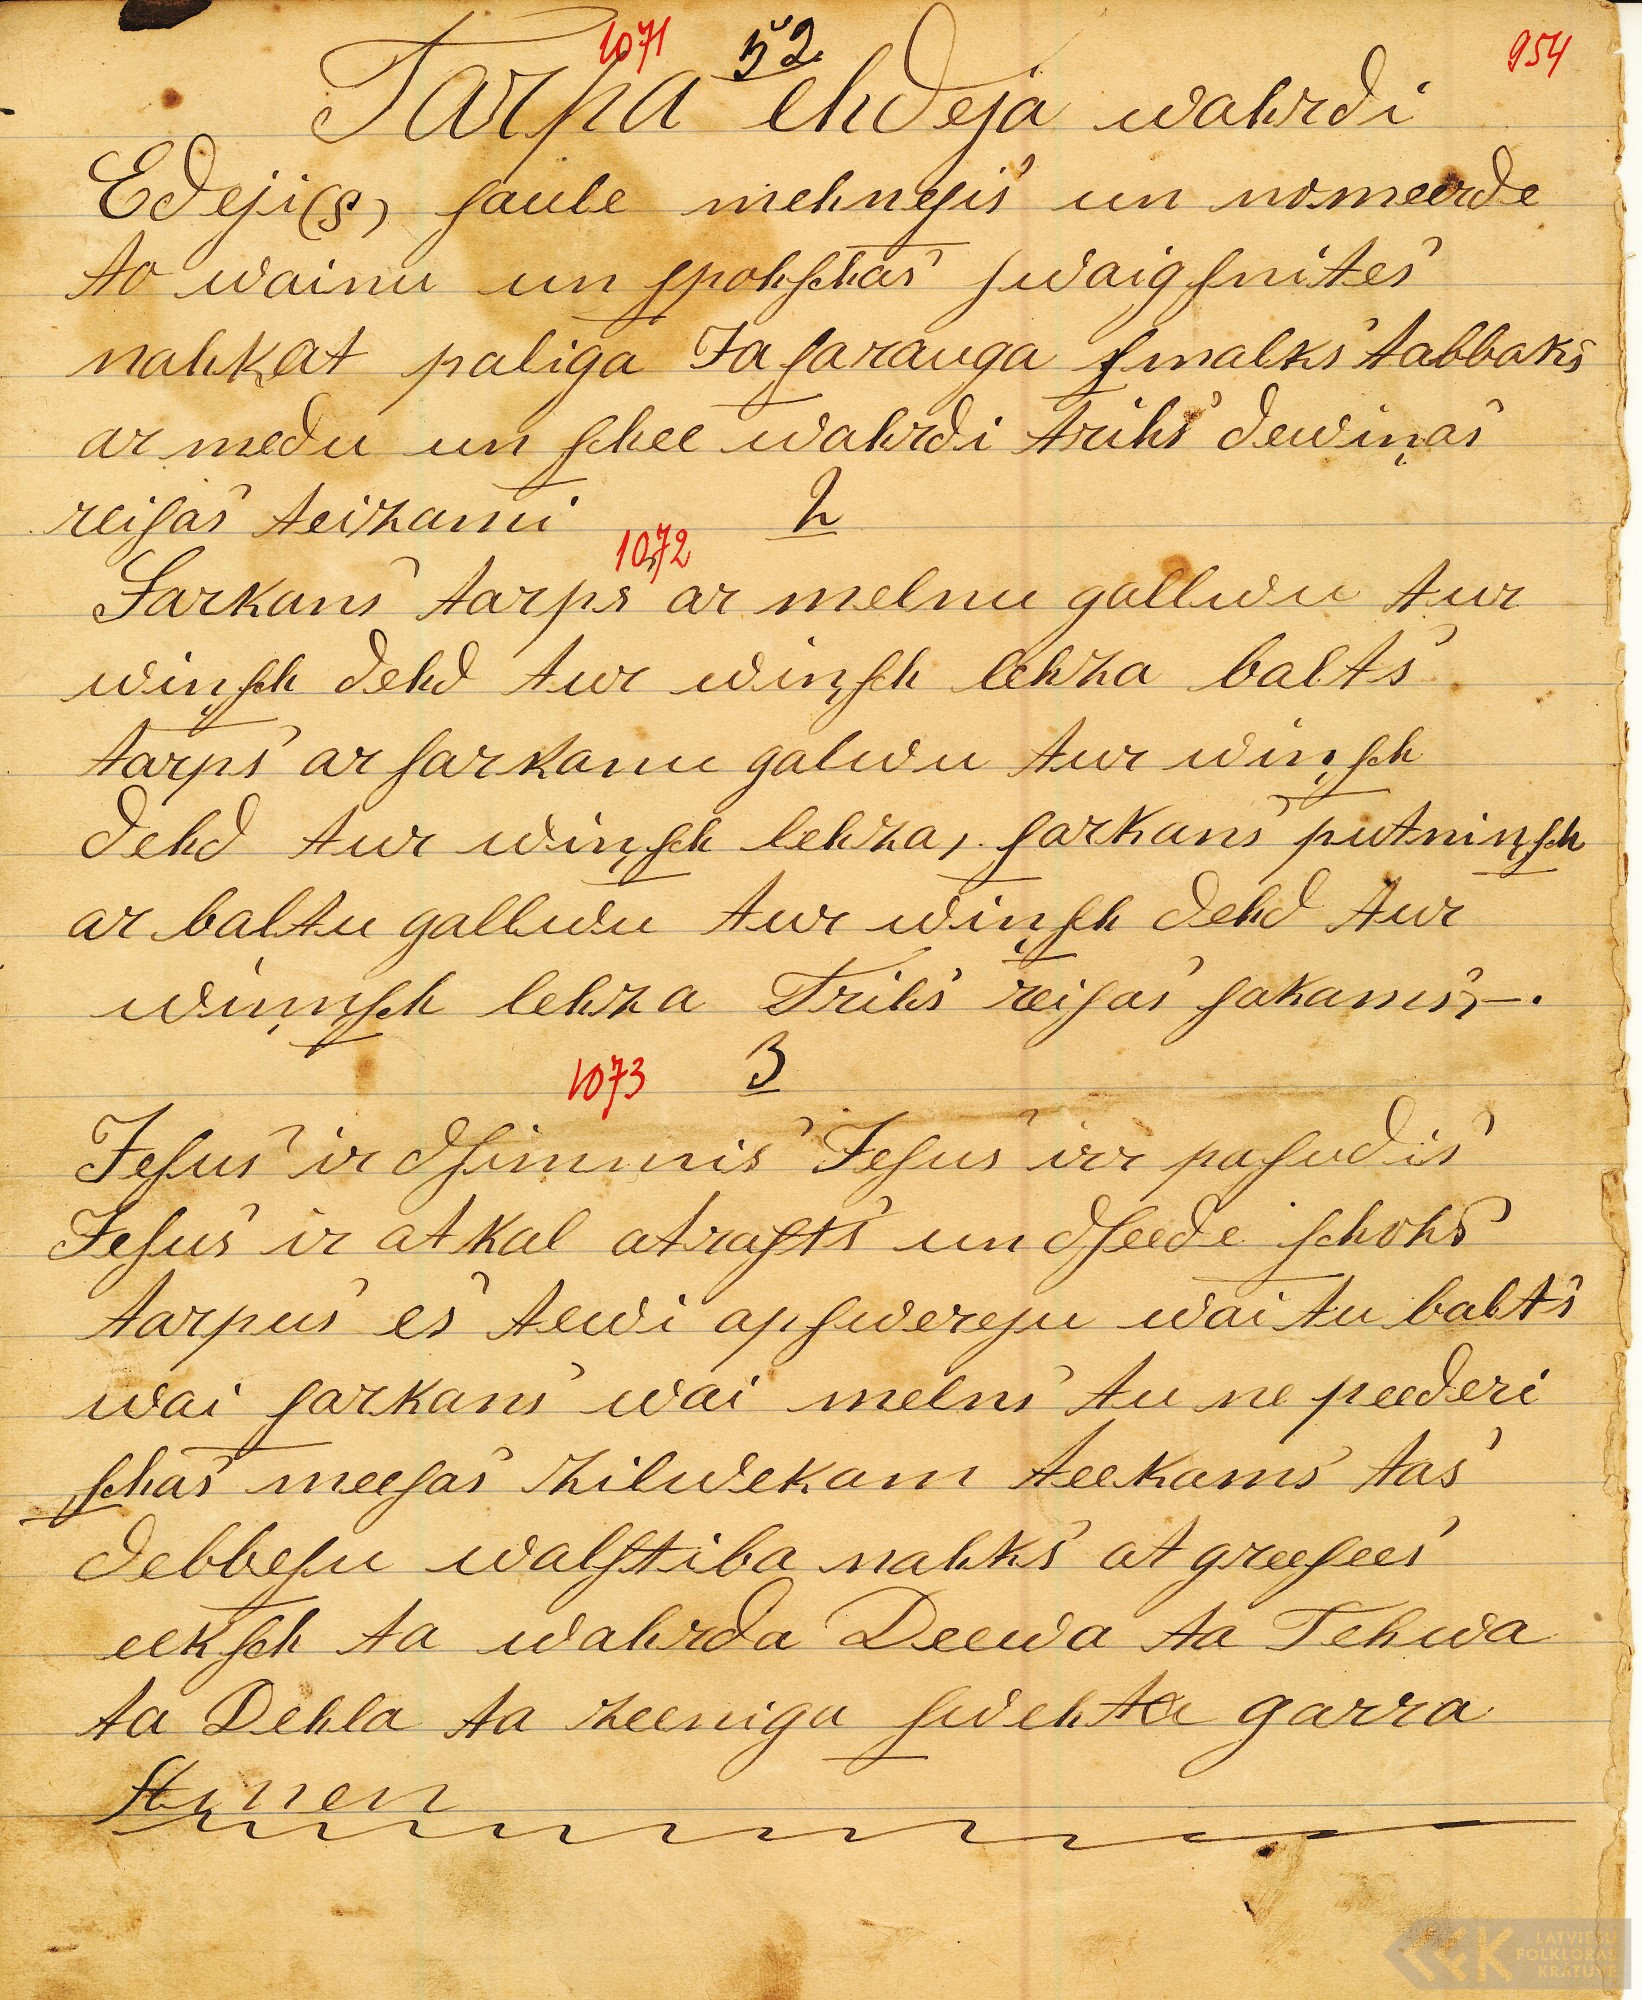 1071 52. 954
Tarpa ehdeja wahrdi
Edeji(s), ſaule mehnesis un nomeerde
to wainu un ſpohſchas ſwaigſnites
nahkat paliga Jaſarauga ſmalks tabbaks
ar medu un ſchee wahrdi trihs dewiņas
reiſas teizami 2
1072
Sarkans tarps ar melnu gallwu tur
wiņſch dehd tur wiņſch lehza balts
tarps ar ſarkanu galwu tur wiņſch
dehd tur wiņſch lehza, ſarkans putniņſch
ar baltu gallwu tur wiņſch dehd tur
wiņņſch lehza Trihs reiſas ſakams,—.
1073 3
Jeſus ir dſimmis Jeſus irr paſudis
Jeſus ir atkal atraſts un dſeede ſchohs
tarpus es tewi apſwereju wai tu balts
wai ſarkans wai melns tu ne peederi
ſchas meeſas zilwekam teekams tas
debbeſu walſtiba nahks at greeſees
eekſch ta wahrda Deewa ta Tehwa
ta Dehla ta zeeniga ſwehta garra
Amen
LATVIEŠU
FOLKLORAS
KRĀTUVE